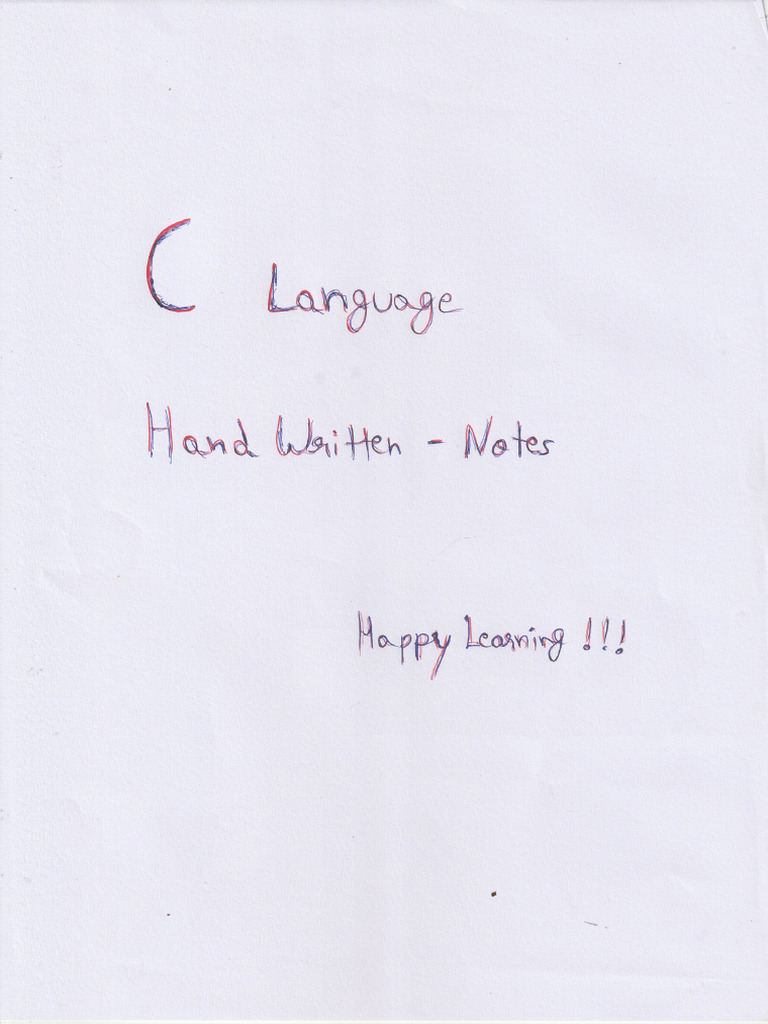 C Language
Hand Written - Notes
Happy Learning !!!